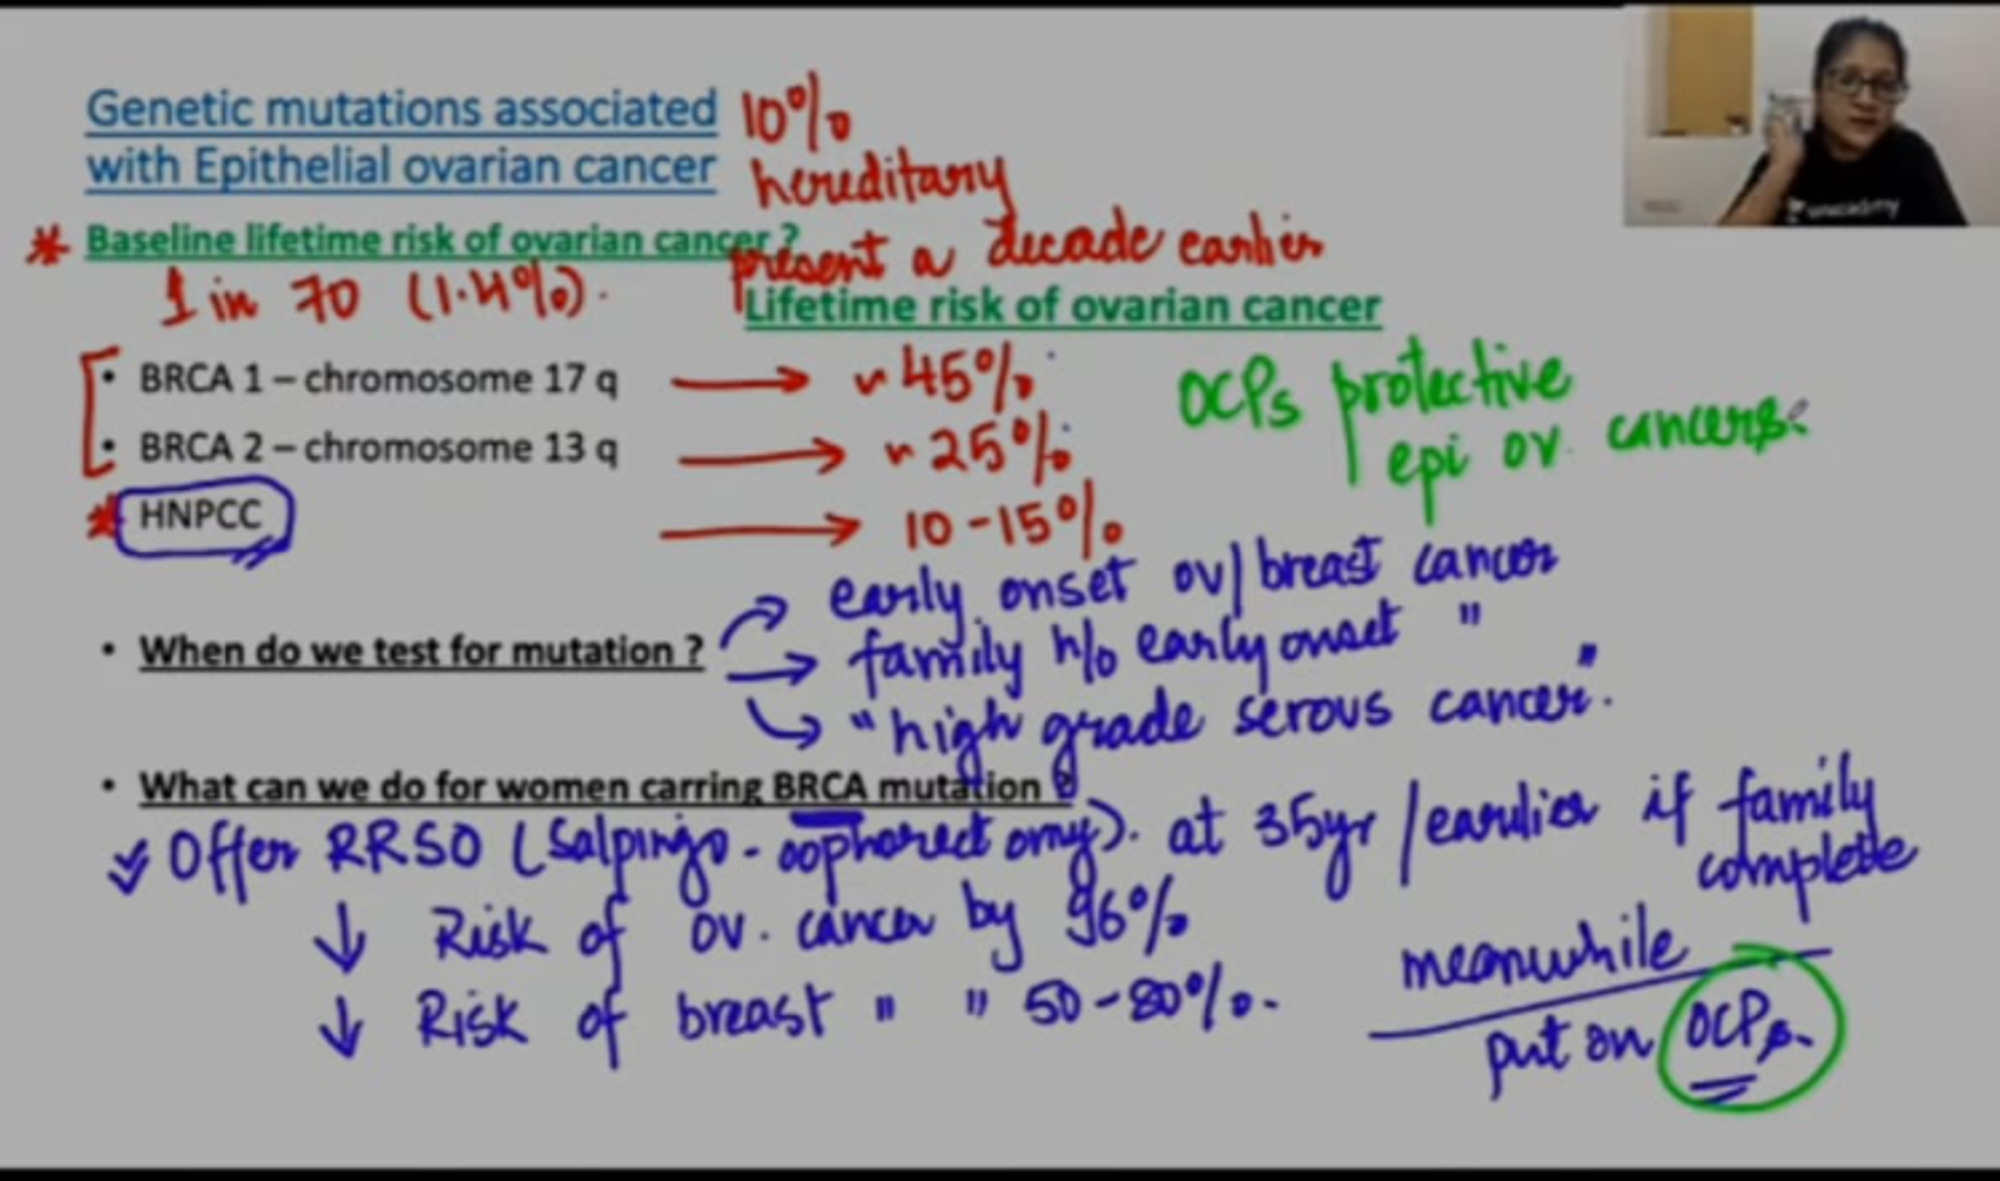 Genetic mutations associated
with Epithelial ovarian cancer
10%
hereditary
present a decade earlier
* Baseline lifetime risk of ovarian cancer ?
1 in 70 (1.4%).
Lifetime risk of ovarian cancer
• BRCA 1 – chromosome 17 q → ~ 45%
• BRCA 2 – chromosome 13 q → ~ 25%
* HNPCC → 10-15%
OCPs protective
epi ov. cancers.
• When do we test for mutation ?
→ early onset ov/breast cancer
→ family h/o early onset "
→ "high grade serous cancer".
• What can we do for women carring BRCA mutation ?
Offer RRSO (Salpingo-oophorectomy). at 35yr/earlier if family
complete
↓ Risk of ov. cancer by 96%
↓ Risk of breast " " 50-80%.
meanwhile
put on OCPs.